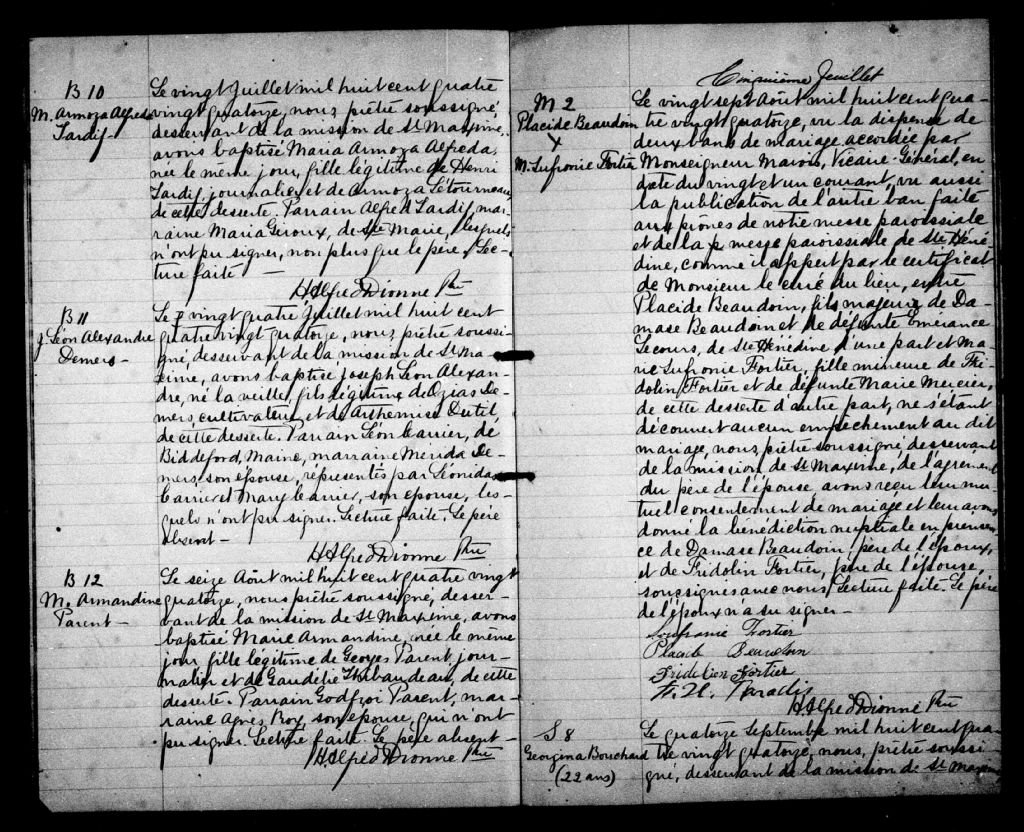 B 10
M. Armoza Alfreda
Tardif
Le vingt Juillet mil huit cent quatre
vingt quatorze, nous, prêtre soussigné,
desservant de la mission de St Maxime,
avons baptisé Maria Armoza Alfreda,
née le même jour, fille légitime de Henri
Tardif, journalier, et de Armoza Létourneau,
de cette desserte. Parrain Alfred Tardif, mar-
raine Maria Giroux, de Ste Marie, lesquels
n'ont pu signer, non plus que le père. Lec-
ture faite —
H Alfred Dionne Ptre
B 11
J. Léon Alexandre
Demers —
Le vingt quatre Juillet mil huit cent
quatre vingt quatorze, nous, prêtre soussi-
gné, desservant de la mission de St Ma-
xime, avons baptisé Joseph Léon Alexan-
dre, né la veille, fils légitime de Ozias De-
mers, cultivateur, et de Arthemise Dutil,
de cette desserte. Parrain Léon Carrier, de
Biddeford, Maine, marraine Merida De-
mers, son épouse, représentés par Léonidas
Carrier et Mary Carrier, son épouse, les-
quels n'ont pu signer. Lecture faite. Le père
absent —
H Alfred Dionne Ptre
B 12
M. Armandine
Parent —
Le seize Août mil huit cent quatre vingt
quatorze, nous prêtre soussigné, desser-
vant de la mission de St Maxime, avons
baptisé Marie Armandine, née le même
jour, fille légitime de Georges Parent, jour-
nalier et de Gaudélie Thibaudeau, de cette
desserte. Parrain Godfroi Parent, mar-
raine Agnès Roy, son épouse, qui n'ont
pu signer. Lecture faite. Le père absent —
H. Alfred Dionne Ptre
Cinquième feuillet
M 2
Placide Beaudoin
X
M. Sufronie Fortier
Le vingt sept Août mil huit cent qua-
tre vingt quatorze, vu la dispense de
deux bans de mariage accordée par
Monseigneur Marois, Vicaire-Général, en
date du vingt et un courant, vu aussi
la publication de l'autre ban faite
aux prônes de notre messe paroissiale
et de la messe paroissiale de Ste Héné-
dine, comme il appert par le certificat
de Monsieur le curé du lieu, entre
Placide Beaudoin, fils majeur de Da-
mase Beaudoin et de défunte Emérance
Lecours, de Ste Hénédine d'une part et Ma-
rie Sufronie Fortier, fille mineure de Fri-
dolin Fortier et de défunte Marie Mercier,
de cette desserte d'autre part, ne s'étant
découvert aucun empêchement au dit
mariage, nous, prêtre soussigné, desservant
de la mission de St Maxime, de l'agrément
du père de l'épouse avons reçu leur mu-
tuel consentement de mariage et leur avons
donné la bénédiction nuptiale en présen-
ce de Damase Beaudoin, père de l'époux,
et de Fridolin Fortier, père de l'épouse,
soussignés avec nous, Lecture faite. Le père
de l'époux n'a su signer —
Soufranie Fortier
Placide Beaudoin
Fridelien Fortier
F. H. Paradis
H Alfred Dionne Ptre
S 8
Georgina Bouchard
(22 ans)
Le quatorze Septembre mil huit cent qua-
tre vingt quatorze, nous, prêtre soussi-
gné, desservant de la mission de St Maxime